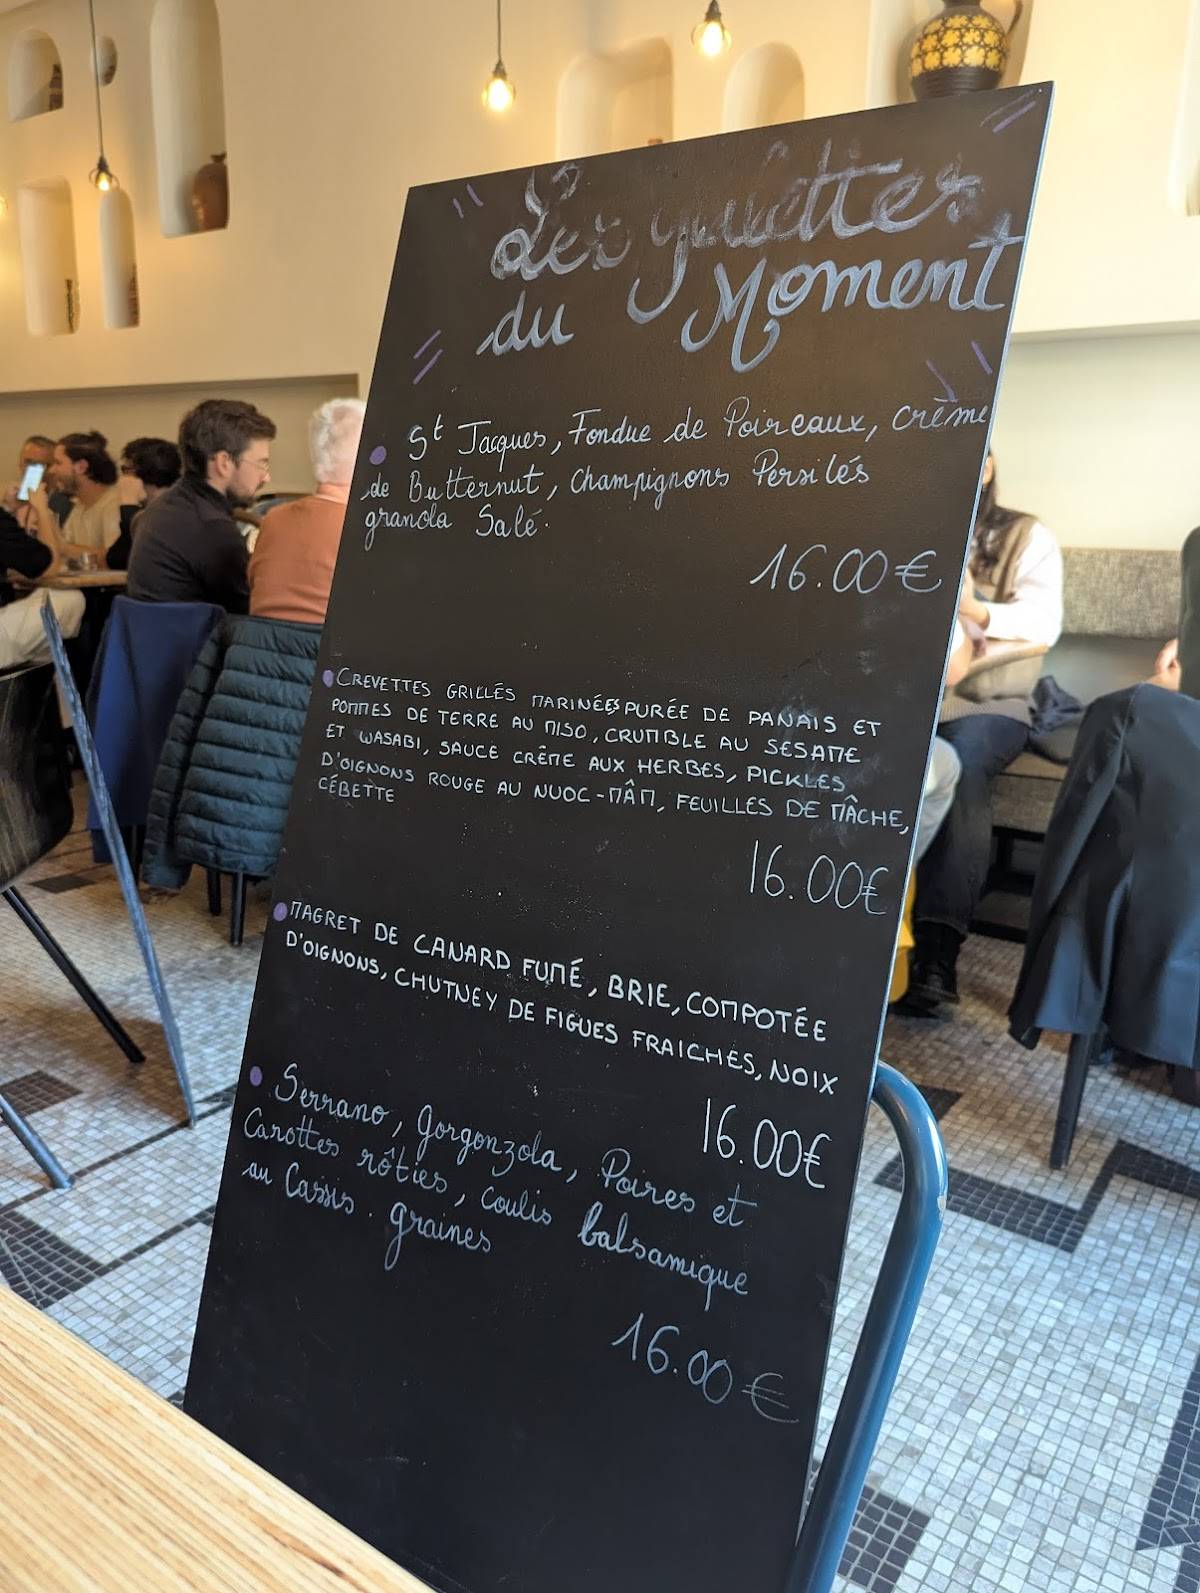 Les galettes
du Moment
St Jacques, Fondue de Poireaux, crème
de Butternut, champignons Persilés
granola Salé.
16.00€
CREVETTES GRILLÉS MARINÉES PURÉE DE PANAIS ET
POMMES DE TERRE AU MISO, CRUMBLE AU SESAME
ET WASABI, SAUCE CRÊME AUX HERBES, PICKLES
D'OIGNONS ROUGE AU NUOC-MÂM, FEUILLES DE MÂCHE,
CÉBETTE
16.00€
MAGRET DE CANARD FUMÉ, BRIE, COMPOTÉE
D'OIGNONS, CHUTNEY DE FIGUES FRAICHES, NOIX
16.00€
Serrano, gorgonzola, Poires et
Carottes rôties, coulis balsamique
au Cassis. graines
16.00€